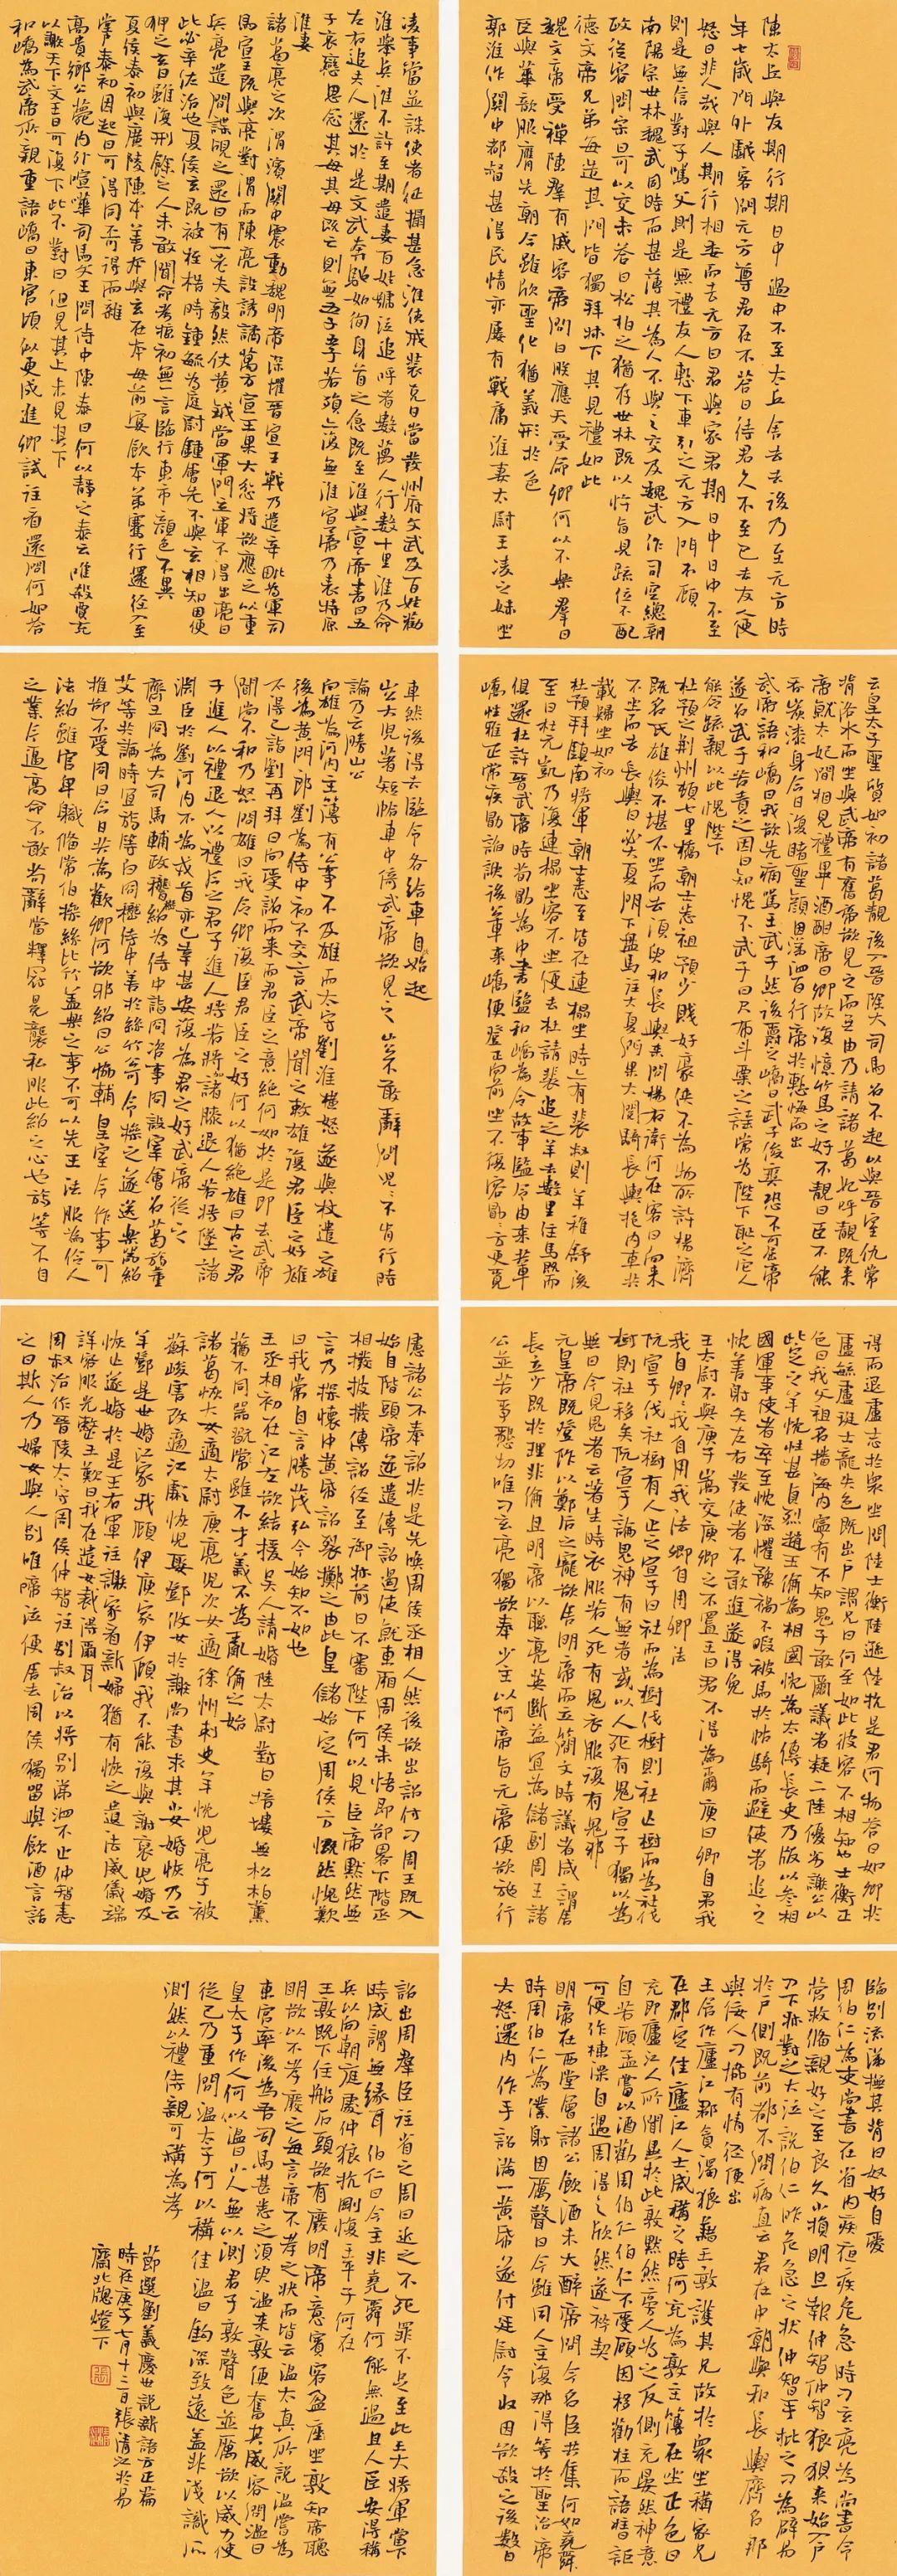 陳太丘與友期行期日中過中不至太丘舍去去後乃至元方時
年七歲門外戲客問元方尊君在不答曰待君久不至已去友人便
怒曰非人哉與人期行相委而去元方曰君與家君期日中日中不至
則是無信對子罵父則是無禮友人慙下車引之元方入門不顧
南陽宗世林魏武同時而甚薄其為人不與之交及魏武作司空總朝
政從容問宗曰可以交未答曰松柏之猶存世林既以忤旨見疏位不配
德文帝兄弟每造其門皆獨拜牀下其見禮如此
魏文帝受禪陳羣有慼容帝問曰朕應天受命卿何以不樂羣曰
臣與華歆服膺先朝今雖欣聖化猶義形於色
郭淮作關中都督甚得民情亦屢有戰庸淮妻太尉王凌之妹坐
凌事當並誅使者征攝甚急淮使戒裝克日當發州府文武及百姓勸
淮舉兵淮不許至期遣妻百姓號泣追呼者數萬人行數十里淮乃命
左右追夫人還於是文武奔馳如徇身首之急既至淮與宣帝書曰五
子哀戀思念其母其母既亡則無五子五子若殞亦復無淮宣帝乃表特原
淮妻
諸葛亮之次渭濱關中震動魏明帝深懼晉宣王戰乃遣辛毗為軍司
馬宣王既與亮對渭而陳亮設誘譎萬方宣王果大忿將欲應之以重
兵亮遣間諜覘之還曰有一老夫毅然仗黃鉞當軍門立軍不得出亮曰
此必辛佐治也夏侯玄既被桎梏時鍾毓為廷尉鍾會先不與玄相知因便
狎之玄曰雖復刑餘之人未敢聞命考掠初無一言臨行東市顏色不異
夏侯泰初與廣陵陳本善本與玄在本母前宴飲本弟騫行還徑入至
堂戶泰初因起曰可得同不可得而雜
高貴鄉公薨內外喧嘩司馬文王問侍中陳泰曰何以靜之泰云唯殺賈充
以謝天下文王曰可復下此不對曰但見其上未見其下
和嶠為武帝所親重語嶠曰東宮頃似更成進卿試往看還問何如答
云皇太子聖質如初諸葛靚後入晉除大司馬召不起以與晉室仇常
背洛水而坐與武帝有舊帝欲見之而無由乃請諸葛妃呼靚既來
帝就太妃間相見禮畢酒酣帝曰卿故復憶竹馬之好不靚曰臣不能
吞炭漆身今日復睹聖顏因涕泗百行帝於是慙悔而出
武帝語和嶠曰我欲先痛罵王武子然後爵之嶠曰武子俊爽恐不可屈帝
遂召武子苦責之因曰知愧不武子曰尺布斗粟之謠常為陛下恥之它人
能令疏親以此愧陛下
杜預之荊州頓七里橋朝士悉祖預少賤好豪俠不為物所許楊濟
既名氏雄俊不堪不坐而去須臾和長輿來問楊右衛何在客曰向來
不坐而去長輿曰必大夏門下盤馬往大夏門果大閱騎長輿抱內車共
載歸坐如初
杜預拜鎮南將軍朝士悉至皆在連榻坐時亦有裴叔則羊稚舒後
至曰杜元凱乃復連榻坐客不坐便去杜請裴追之羊去數里住馬既而
俱還杜許晉武帝時荀勖為中書監和嶠為令故事監令由來共車
嶠性雅正常疾勖諂諛後公車來嶠便登正向前坐不復容勖勖方更覓
車然後得去監令各給車自始起
山公大兒著短帢車中倚武帝欲見之山公不敢辭問兒兒不肯行時
論乃云勝山公
向雄為河內主簿有公事不及雄而太守劉淮橫怒遂與杖遣之雄
後為黃門郎劉為侍中初不交言武帝聞之敕雄復君臣之好雄
不得已詣劉再拜曰向受詔而來而君臣之意絕何如於是即去武帝
聞尚不和乃怒問雄曰我令卿復君臣之好何以猶絕雄曰古之君
子進人以禮退人以禮今之君子進人將若將加諸膝退人若將墜諸
淵臣於劉河內不為戎首亦已幸甚安復為君臣之好武帝從之
齊王冏為大司馬輔政嵇紹為侍中詣冏咨事冏設宰會召葛旟董
艾等共論時宜旟等白冏嵇侍中善於絲竹公可令操之遂送樂器紹
推卻不受冏曰今日共為歡卿何卻邪紹曰公協輔皇室令作事可
法紹雖官卑職備常伯操絲比竹蓋樂官之事不可以先王法服為伶人
之業今逼高命不敢苟辭當釋冠冕襲私服此紹之心也旟等不自
得而退盧志於眾坐問陸士衡陸遜陸抗是君何物答曰如卿於
盧毓盧珽士龍失色既出戶謂兄曰何至如此彼容不相知也士衡正
色曰我父祖名播海內寧有不知鬼子敢爾議者疑二陸優劣謝公以
此定之羊忱性甚貞烈趙王倫為相國忱為太傅長史乃版以參相
國軍事使者卒至忱深懼豫禍不暇被馬於是帖騎而避使者追之
忱善射矢左右發使者不敢進遂得免
王太尉不與庾子嵩交庾卿之不置王曰君不得為爾庾曰卿自君我
我自卿卿我自用我法卿自用卿法
阮宣子伐社樹有人止之宣子曰社而為樹伐樹則社亡樹而為社伐
樹則社移矣阮宣子論鬼神有無者或以人死有鬼宣子獨以為
無曰今見鬼者云著生時衣服若人死有鬼衣服復有鬼邪
元皇帝既登阼以鄭后之寵欲舍明帝而立簡文時議者咸謂舍
長立少既於理非倫且明帝以聰亮英斷益宜為儲副周王諸
公並苦爭懇切唯刁玄亮獨欲奉少主以阿帝旨元帝便欲施行
慮諸公不奉詔於是先喚周侯丞相入然後欲出詔付刁周王既入
始自階頭帝逆遣傳詔遏使就東廂周侯未悟即卻略下階丞
相披撥傳詔徑至御牀前曰不審陛下何以見臣帝默然無
言乃探懷中黃紙詔裂擲之由此皇儲始定周侯方慨然愧歎
曰我常自言勝茂弘今始知不如也
王丞相初在江左欲結援吳人請婚陸太尉對曰培塿無松柏薰
蕕不同器玩雖不才義不為亂倫之始
諸葛恢大女適太尉庾亮兒次女適徐州刺史羊忱兒亮子被
蘇峻害改適江虨恢兒娶鄧攸女於時謝尚書求其小女婚恢乃云
羊鄧是世婚江家我顧伊庾家伊顧我不能復與謝裒兒婚及
恢亡遂婚於是王右軍往謝家看新婦猶有恢之遺法威儀端
詳容服光整王歎曰我在遣女裁得爾耳
周叔治作晉陵太守周侯仲智往別叔治以將別涕泗不止仲智恚
之曰斯人乃婦女與人別唯啼泣便舍去周侯獨留與飲酒言話
臨別流涕撫其背曰奴好自愛
周伯仁為吏部尚書在省內夜疾危急時刁玄亮為尚書令
營救備親好之至良久小損明旦報仲智仲智狼狽來始入戶
刁下牀對之大泣說伯仁昨危急之狀仲智手批之刁為辟易
於戶側既前都不問病直云君在中朝與和長輿齊名那
與佞人刁協有情徑便出
王含作廬江郡貪濁狼藉王敦護其兄故於眾坐稱家兄
在郡定佳廬江人士咸稱之時何充為敦主簿在坐正色曰
充即廬江人所聞異於此敦默然旁人為之反側充晏然神意
自若顧孟著嘗以酒勸周伯仁伯仁不受顧因移勸柱而語柱曰詎
可便作棟梁自遇周得之欣然遂為衿契
明帝在西堂會諸公飲酒未大醉帝問今名臣共集何如堯舜
時周伯仁為僕射因厲聲曰今雖同人主復那得等於聖治帝
大怒還內作手詔滿一黃紙遂付廷尉令收因欲殺之後數日
詔出周羣臣往省之周曰近之不死罪不足至此王大將軍當下
時咸謂無緣耳伯仁曰今主非堯舜何能無過且人臣安得稱
兵以向朝廷處仲狼抗剛愎王平子何在
王敦既下住船石頭欲有廢明帝意賓客盈座坐敦知帝聰
明欲以不孝廢之每言帝不孝之狀而皆云溫太真所說溫嘗為
東宮率後為吾司馬甚悉之須臾溫來敦便奮其威容問溫曰
皇太子作人何似溫曰小人無以測君子敦聲色並厲欲以威力使
從己乃重問溫太子何以稱佳溫曰鉤深致遠蓋非淺識所
測然以禮侍親可稱為孝
節選劉義慶世說新語方正篇
時在庚子七月十二日張清江於易
齋北牕燈下